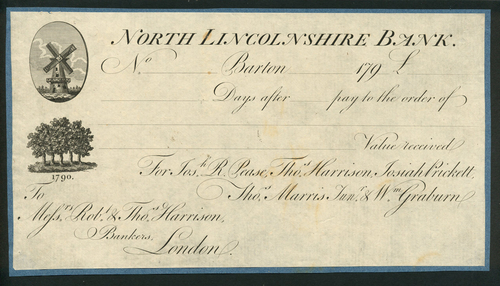 NORTH LINCOLNSHIRE BANK.
No Barton 179 £
Days after pay to the order of
Value received
1790.
For Josh. R. Pease, Thos. Harrison, Josiah Prickett,
Thos. Marris Junr. & Wm. Graburn
To
Messrs. Robt. & Thos. Harrison,
Bankers,
London.